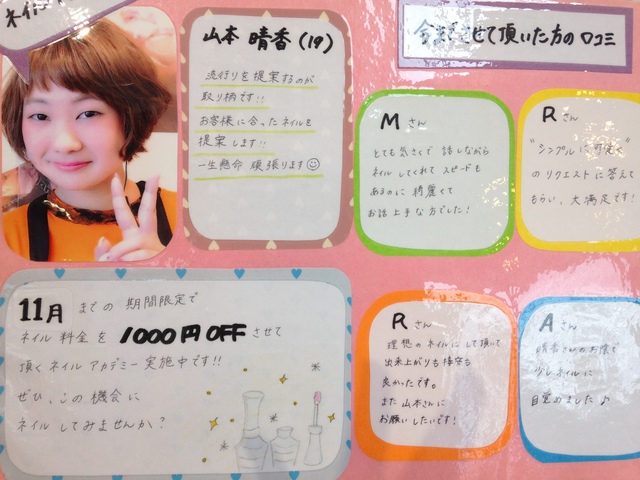 山本 晴香 (19)
流行りを提案するのが
取り柄です!!
お客様に合ったネイルを
提案します!!
一生懸命 頑張ります☺
今までさせて頂いた方の口コミ
Mさん
とても気さくで 話しながら
ネイルしてくれて スピードも
あるのに 綺麗くて
お話上手な方でした!
Rさん
"シンプルに可愛く"
のリクエストに答えて
もらい、大満足です!
11月 までの 期間限定で
ネイル 料金 を 1000円OFF させて
頂く ネイル アカデミー 実施中です!!
ぜひ、この 機会 に
ネイル してみませんか?
Rさん
理想のネイルにして頂いて
出来上がりも 持ちも
良かったです。
また 山本さんに
お願いしたいです!
Aさん
晴香さんのお陰で
少しネイルに
目覚めました♪